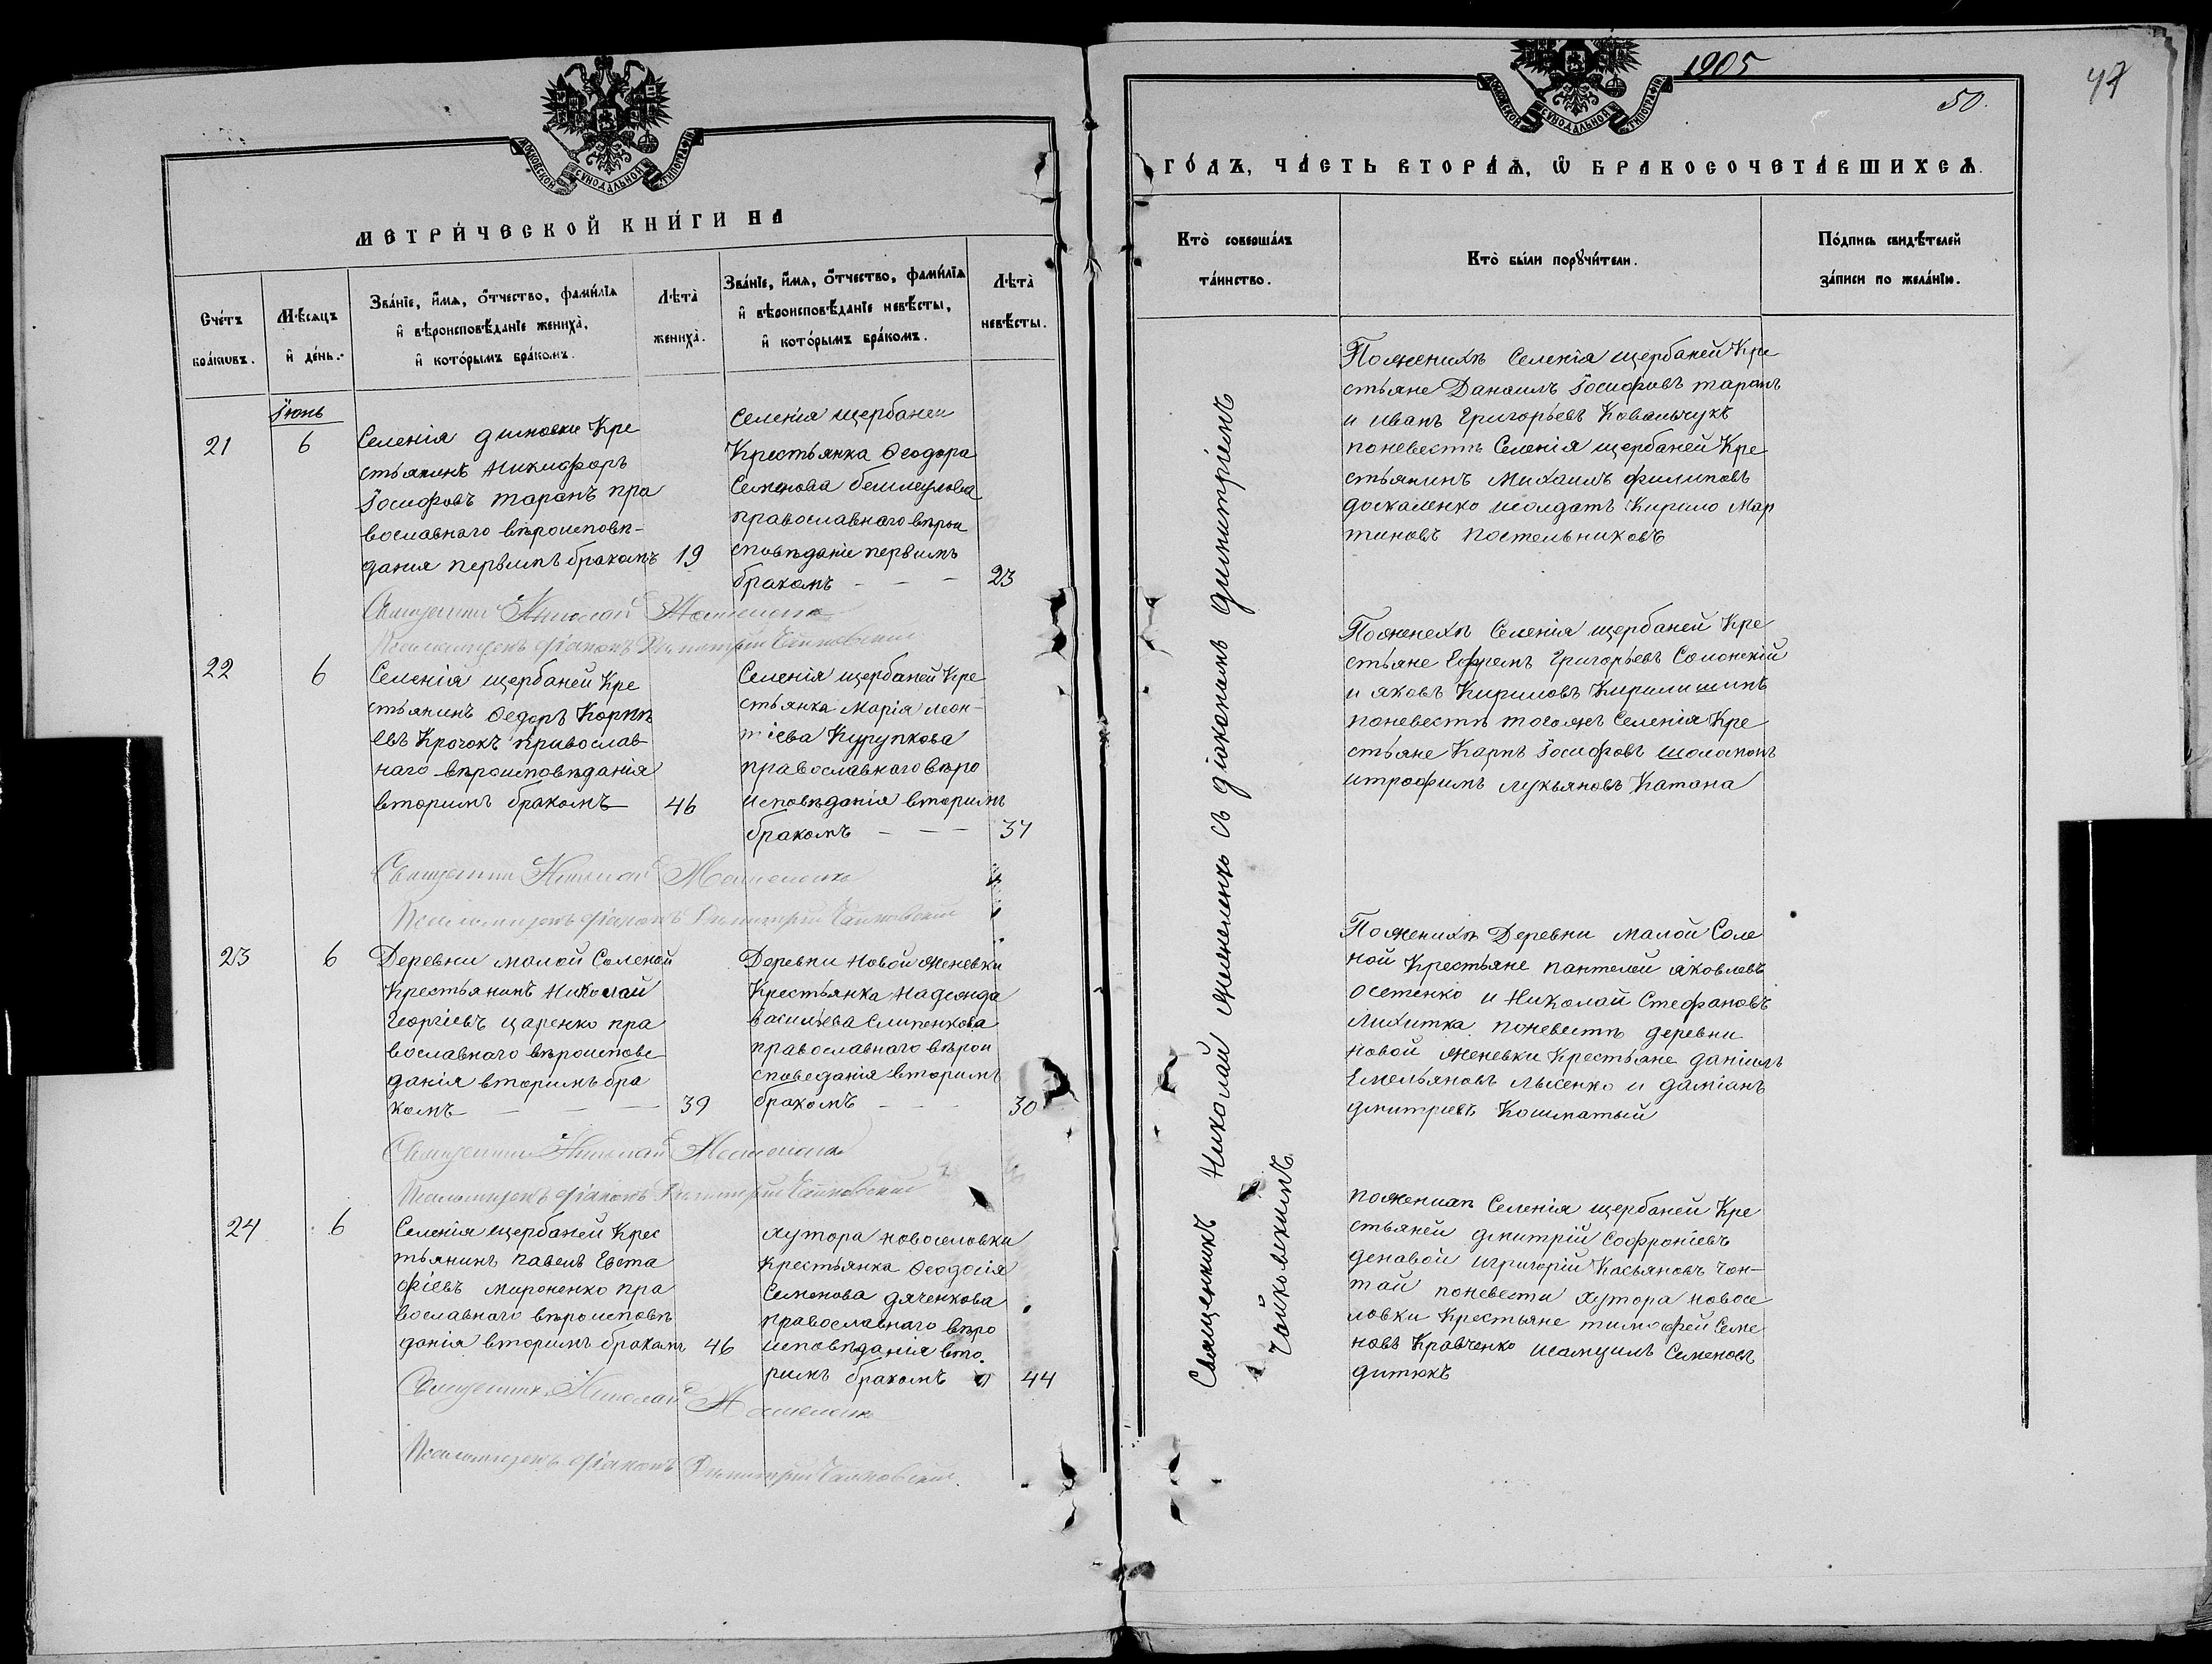 МЕТРИ́ЧЕСКОЙ КНИ́ГИ НА
Сче́тъ бра́ковъ.
Мѣ́сяцъ и҆ де́нь.
Зва́нїе, и҆́мѧ, ѻ҆́тчество, фами́лїѧ
и҆ вѣроисповѣ́данїе жениха̀,
и҆ кото́рымъ бра́комъ.
Лѣта̀ жениха̀.
Зва́нїе, и҆́мѧ, ѻ҆́тчество, фами́лїѧ
и҆ вѣроисповѣ́данїе невѣ́сты,
и҆ кото́рымъ бра́комъ.
Лѣта̀ невѣ́сты.
Іюнь
21
6
Селенія Кре
стьянинъ Никифоръ
Іосифовъ таранъ пра
вославнаго вѣроисповѣ-
данія первымъ бракомъ
19
Селенія щербаней
Крестьянка Ѳеодора
Семенова
православнаго вѣрои
сповѣданіе первымъ
бракомъ - - -
23
Священникъ Николай
Псаломщикъ діаконъ Димитрій Чайковскій
22
6
Селенія щербаней Кре
стьянинъ Ѳедоръ Корнѣ
евъ Крочокъ православ
наго вѣроисповѣданія
вторимъ бракомъ
46
Селенія щербаней Кре
стьянка Марія леон-
тіева Курупкова
православнаго вѣро
исповѣданія вторимъ
бракомъ - - -
37
Священникъ Николай
Псаломщикъ діаконъ Димитрій Чайковскій
23
6
Деревни малой Соленой
Крестьянинъ Николай
Георгіевъ царенко пра
вославнаго вѣроиспове
данія вторимъ бра
комъ - - -
39
Деревни Новой Женевки
Крестьянка Надежда
васильева Слипенкова
православнаго вѣрои
споведанія вторимъ
бракомъ - - -
30
Священникъ Николай
Псаломщикъ діаконъ Димитрій Чайковскій
24
6
Селенія щербаней Крес
тьянинъ павелъ Евста
фіевъ мироненко пра
вославнаго вѣроисповѣ
данія вторимъ бракомъ
46
хутора новоселовки
крестьянка Ѳеодосія
Семенова дяченкова
православнаго вѣро
исповѣданія вто
римъ бракомъ
44
Священникъ Николай
Псаломщикъ діаконъ Димитрій Чайковскій.
1905
50.
47
ГО́ДЪ, ЧА́СТЬ ВТОРА́Ѧ, Ѽ БРАКОСОЧЕТА́ВШИХСѦ.
Кто̀ соверша́лъ
та́инство.
Кто̀ бы́ли порꙋчи́тели.
По́дпись свидѣ́телей
за́писи по жела́нїю.
Священникъ Николай съ діакономъ димитріемъ
Чайковскимъ
Поженихѣ Селенія щербаней Кре
стьяне Даниилъ Іосифовъ таранъ
и иванъ Григорьевъ Ковальчукъ
поневестѣ Селенія щербаней Кре
стьянинъ Михаилъ филиповъ
доскаленко исолдатъ Кирило Мар
тиновъ постельниковъ
Поженехѣ Селенія щербаней Кре
стьяне Ефремъ Григорьевъ Солонскій
и яковъ Кириловъ Кирилишинъ
поневестѣ тогожъ Селенія Кре
стьяне Карпъ Іосифовъ
итрофимъ лукьяновъ Катана
Поженихѣ Деревни малой Соле
ной Крестьяне пантелей яковлевъ
осетенко и Николай Стефановъ
Микитка поневестѣ деревни
новой женевки Крестьяне даніилъ
Емельяновъ лысенко и даміанъ
дмитріевъ Кошматый
поженихѣ Селенія щербаней Кре
стьяней дмитрій Софроніевъ
денавой игригорій Касьяновъ Чон-
тай поневести хутора новосе
ловки Крестьяне тимофей Семе
новъ Кравченко исамуилъ Семеновъ
дитюкъ